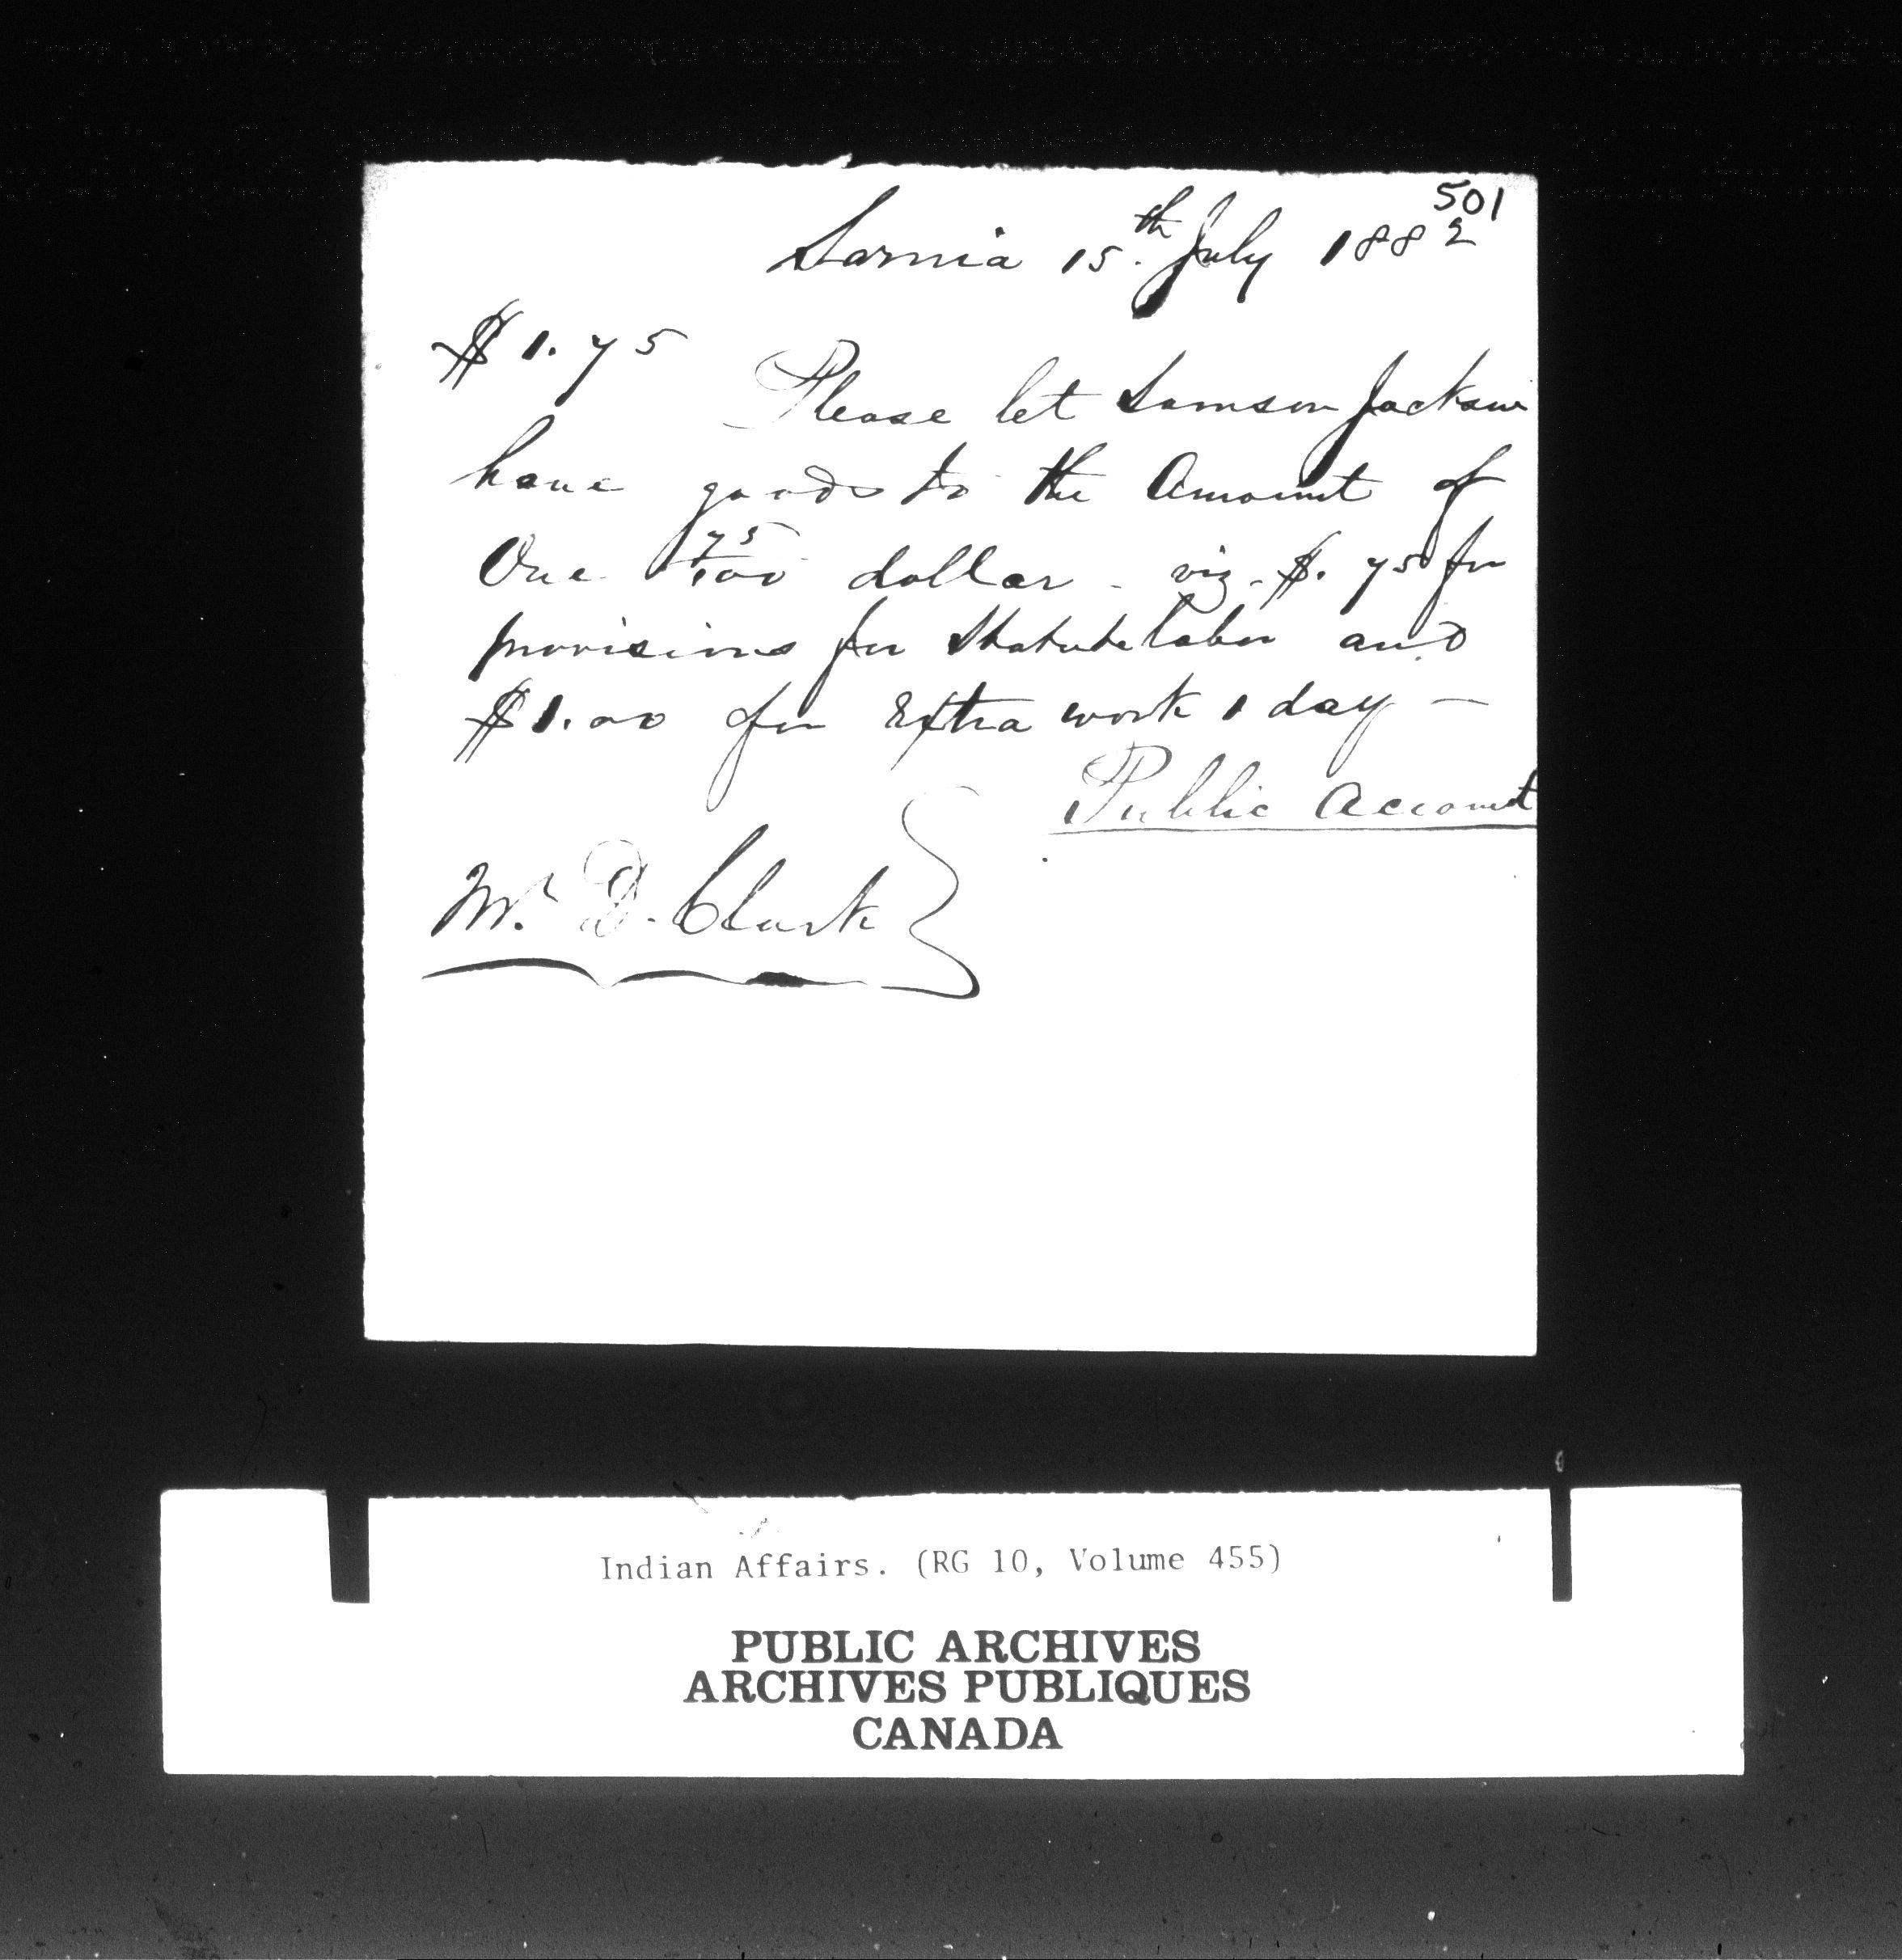 501
Sarnia 15th July 1882
$1.75
Please let Samson Jackson
have goods to the Amount of
One 75/100 dollar - viz - $.75 for
provisions for Statute labor and
$1.00 for Extra work 1 day —
Public Account
Mr. D. Clark
Indian Affairs. (RG 10, Volume 455)
PUBLIC ARCHIVES
ARCHIVES PUBLIQUES
CANADA